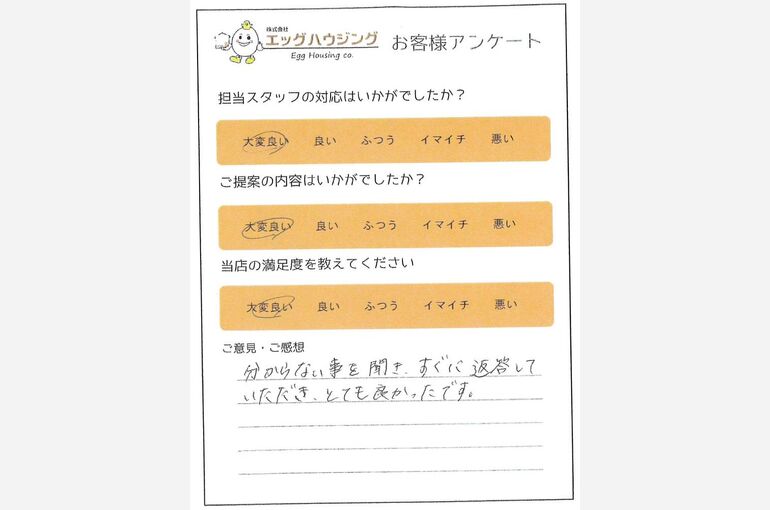 株式会社
エッグハウジング
Egg Housing co.
お客様アンケート
担当スタッフの対応はいかがでしたか？
大変良い 良い ふつう イマイチ 悪い
ご提案の内容はいかがでしたか？
大変良い 良い ふつう イマイチ 悪い
当店の満足度を教えてください
大変良い 良い ふつう イマイチ 悪い
ご意見・ご感想
分からない事を聞き、すぐに返答して
いただき、とても良かったです。